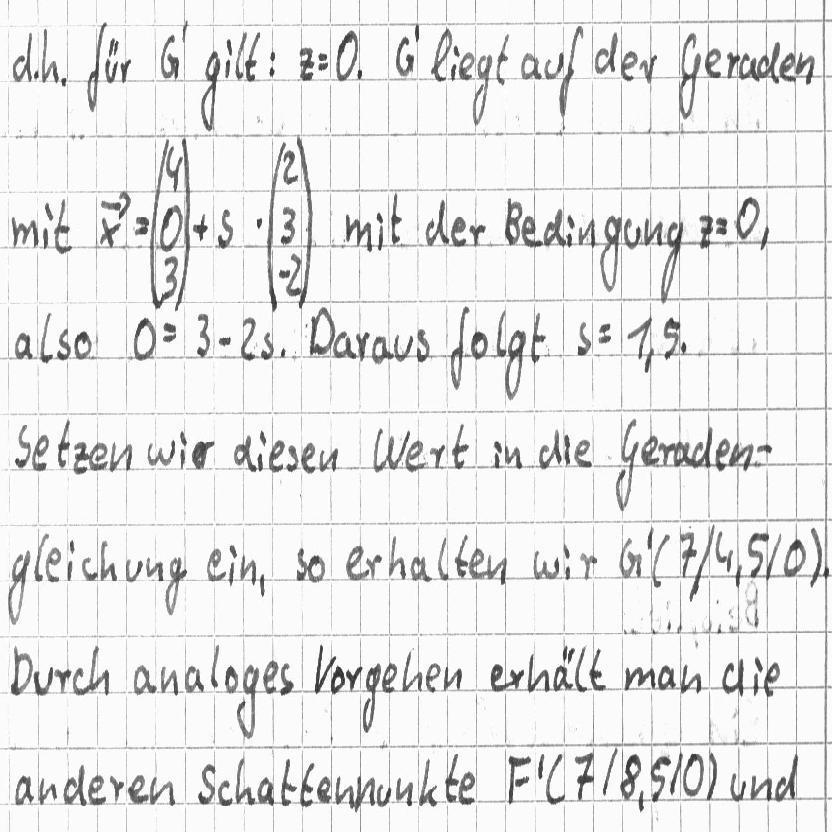 d.h. für G' gilt: z=0. G' liegt auf der Geraden
mit x⃗ = (4 0 3) + s · (2 3 -2) mit der Bedingung z=0,
also 0 = 3 - 2s. Daraus folgt s = 1,5.
Setzen wir diesen Wert in die Geraden-
gleichung ein, so erhalten wir G'(7/4,5/0).
Durch analoges Vorgehen erhält man die
anderen Schattenpunkte F'(7/8,5/0) und